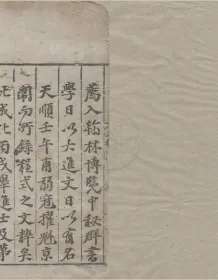 薦入翰林博覽中秘群書
學日以大進文日以有名
天順壬午甫弱冠擢魁京
闈而所錄程式之文粹矣
成化丙戌舉進士及第